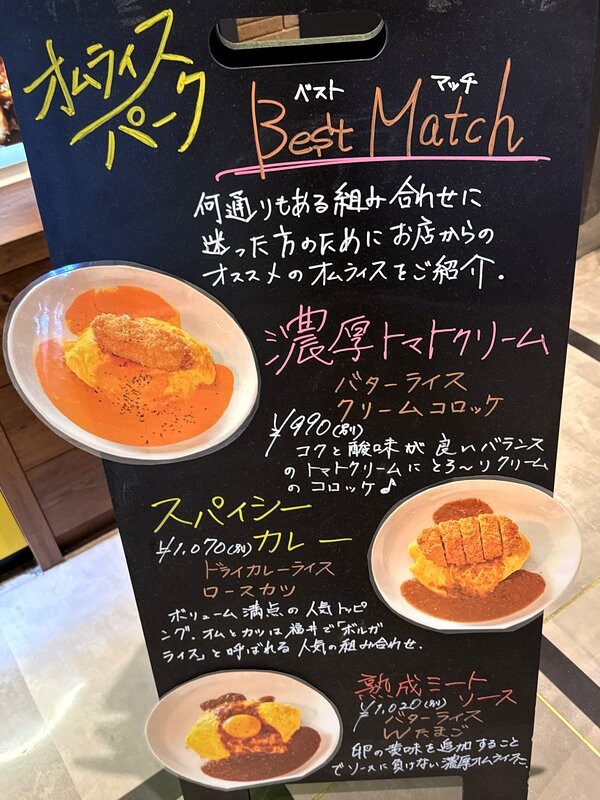 オムライス
パーク
ベスト マッチ
Best Match
何通りもある組み合わせに
迷った方のためにお店からの
オススメのオムライスをご紹介.
濃厚トマトクリーム
バターライス
クリームコロッケ
¥990(税別)
コクと酸味が良いバランス
のトマトクリームにとろ〜りクリーム
のコロッケ♪
スパイシー
¥1,070(税別) カレー
ドライカレーライス
ロースカツ
ボリューム満点の人気トッピ
ング.オムとカツは福井で「ボルガ
ライス」と呼ばれる人気の組み合わせ.
熟成ミート
ソース
¥1,020(税別)
バターライス
Wたまご
卵の黄味を追加すること
でソースに負けない濃厚オムライスに.